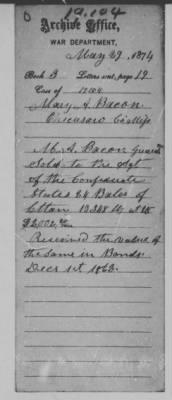 12.104
Archive Office,
WAR DEPARTMENT,
May 29, 1874
Book B Letters sent, page 12
Case of 12104
Mary A. Bacon
Co Miss
M. A. Bacon
Sold to the Agt
of the Confederate
States 24 Bales of
Cotton 12348 lbs at
Received the value of
the same in Bonds
Decr 1st 1862.